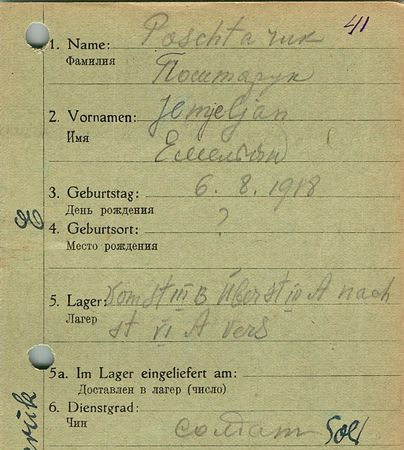 41
1. Name: Poschtaruk
Фамилия
Поштарук
2. Vornamen: Jemjeljan
Имя
Емельян
3. Geburtstag: 6. 8. 1918
День рождения
4. Geburtsort: ?
Место рождения
5. Lager: kom St III B Überst IV A nach
Лагер
St VI A vers
5a. Im Lager eingeliefert am:
Доставлен в лагер (число)
6. Dienstgrad:
Чин
солдат Sol